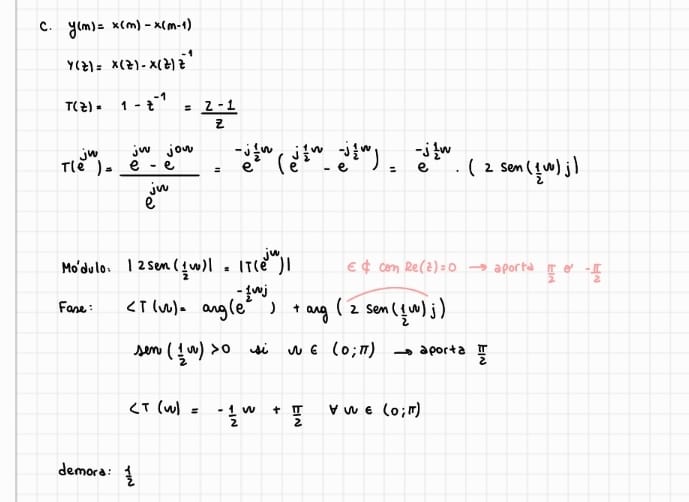 c. y(m) = x(m) - x(m-1)
Y(z) = X(z) - X(z) z^-1
T(z) = 1 - z^-1 = (z-1)/z
T(e^jw) = (e^jw - e^j0w)/e^jw = e^(-j 1/2 w) (e^(j 1/2 w) - e^(-j 1/2 w)) = e^(-j 1/2 w) . (2 sen(1/2 w) j)
Módulo: |2 sen(1/2 w)| = |T(e^jw)| ∈ ₵ con Re(z)=0 → aporta π/2 o' -π/2
Fase: <T(w) = arg(e^(-1/2 wj)) + arg(2 sen(1/2 w) j)
sen(1/2 w) > 0 si w ∈ (0;π) → aporta π/2
<T(w) = -1/2 w + π/2 ∀ w ∈ (0;π)
demora: 1/2